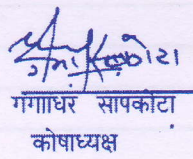 गगााधर सापकोटा
कोषाध्यक्ष